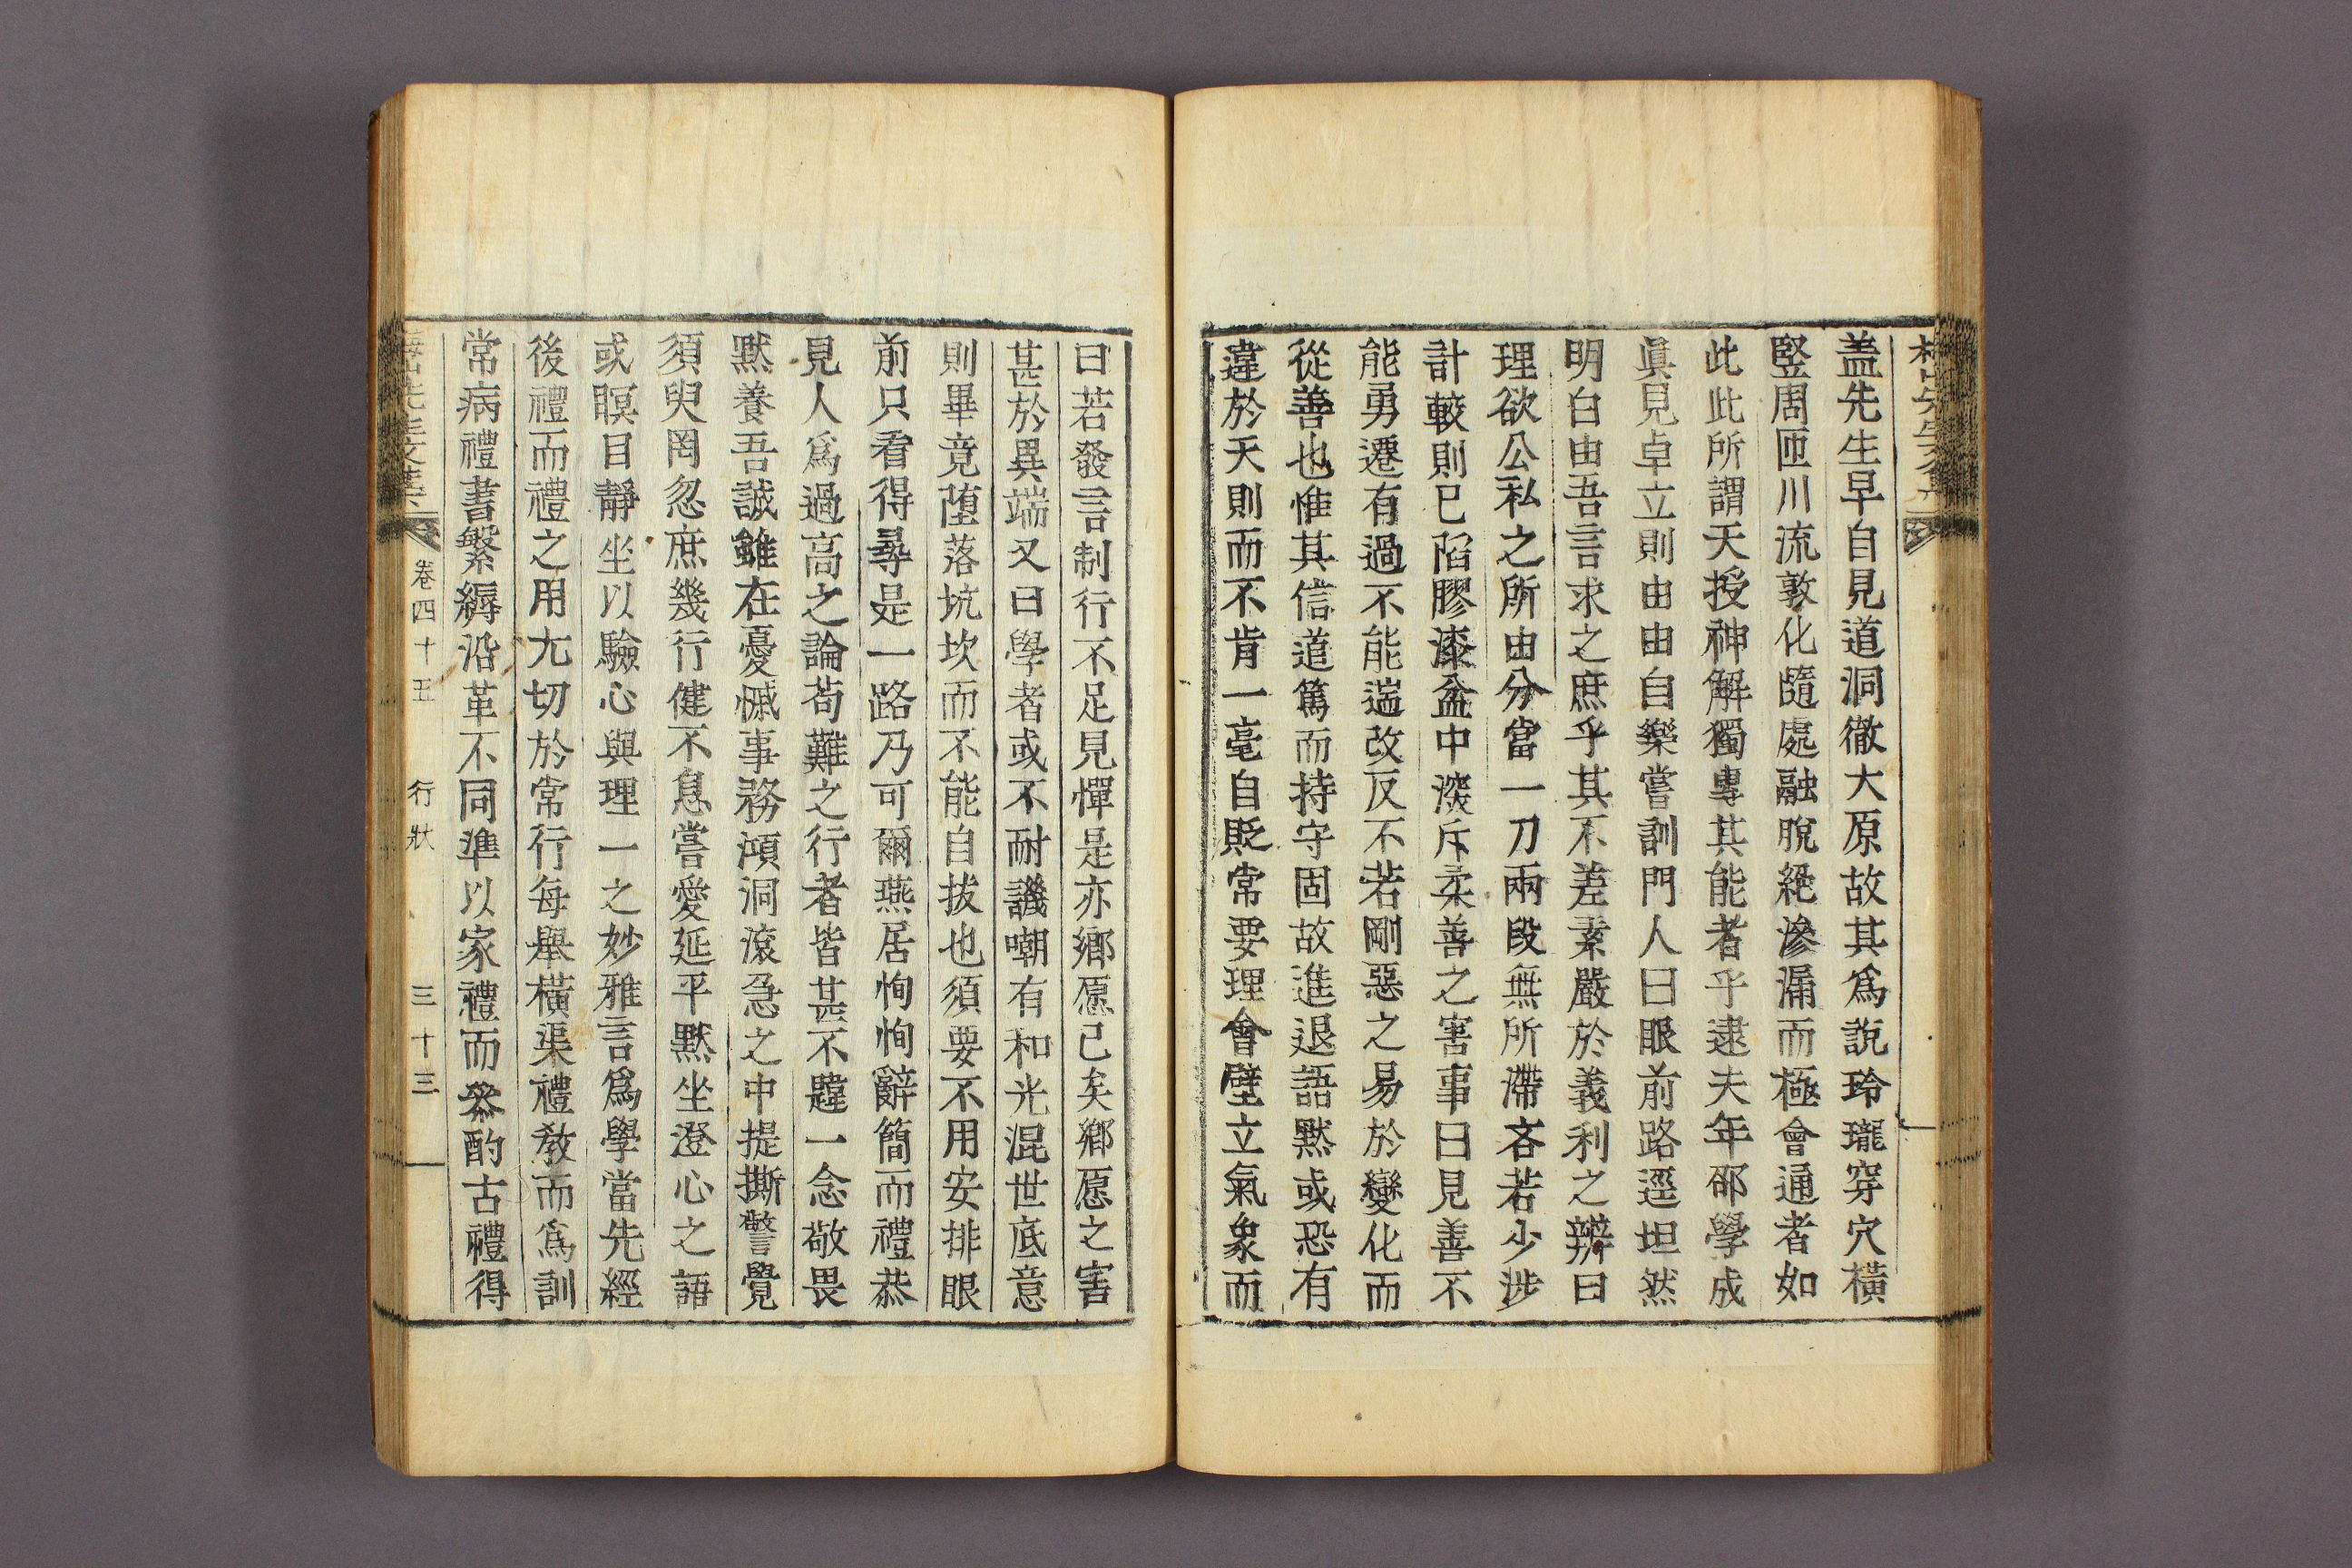 盖先生早自見道洞徹大原故其爲說玲瓏穿穴橫
竪周匝川流敦化隨處融脫絕滲漏而極會通者如
此此所謂天授神解獨專其能者乎逮夫年卲學成
眞見卓立則由由自樂嘗訓門人曰眼前路逕坦然
明白由吾言求之庶乎其不差素嚴於義利之辨曰
理欲公私之所由分當一刀兩段無所滯吝若少涉
計較則已陷膠漆盆中深斥柔善之害事曰見善不
能勇遷有過不能遄改反不若剛惡之易於變化而
從善也惟其信道篤而持守固故進退語默或恐有
違於天則而不肯一毫自貶常要理會壁立氣象而
曰若發言制行不足見憚是亦鄕愿已矣鄕愿之害
甚於異端又曰學者或不耐譏嘲有和光混世底意
則畢竟墮落坑坎而不能自拔也須要不用安排眼
前只看得尋是一路乃可爾燕居恂恂辭簡而禮恭
見人爲過高之論苟難之行者皆甚不韙一念敬畏
默養吾誠雖在憂慽事務澒洞滾急之中提撕警覺
須臾罔忽庶幾行健不息嘗愛延平默坐澄心之語
或瞑目靜坐以驗心與理一之妙雅言爲學當先經
後禮而禮之用尤切於常行每擧橫渠禮敎而爲訓
常病禮書繁縟沿革不同準以家禮而叅酌古禮得
卷四十五 行狀 三十三